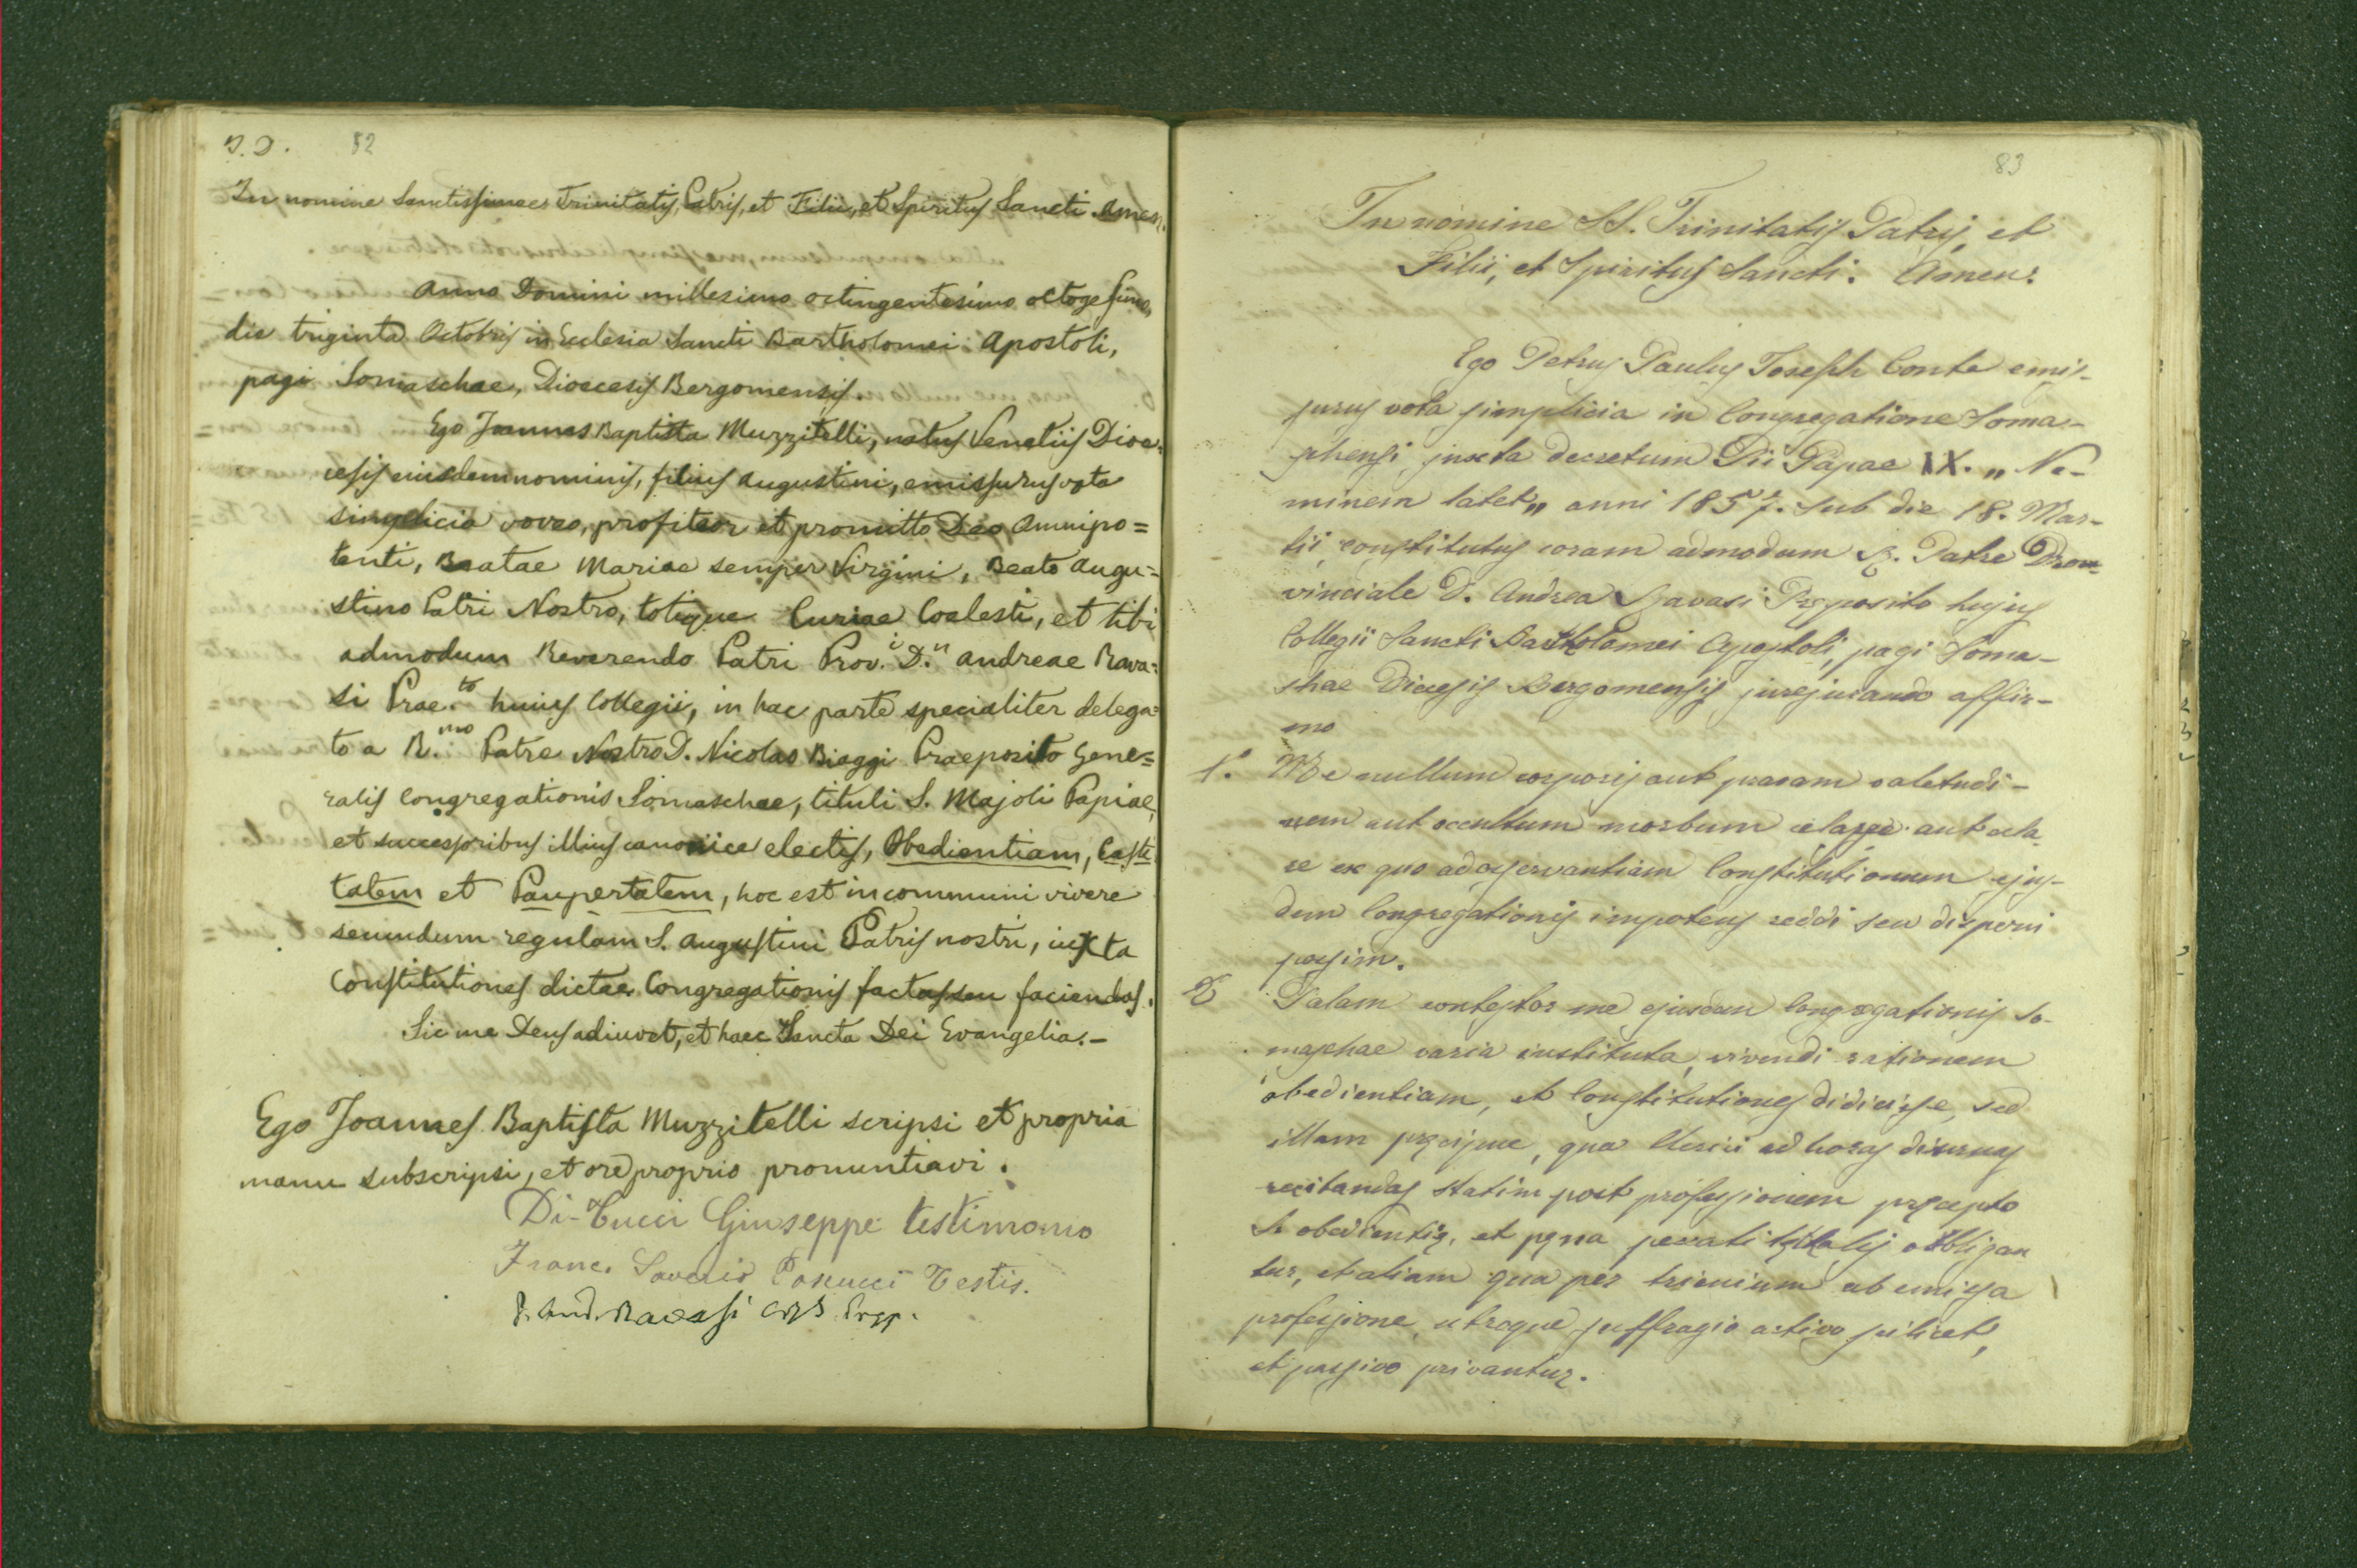 J. D. 82
In nomine Sanctissimae Trinitatis, Patris, et Filii, et Spiritus Sancti. Amen.
Anno Domini millesimo octingentesimo octogesimo,
die triginta Octobris in Ecclesia Sancti Bartholomei Apostoli,
pagi Somaschae, Dioecesis Bergomensis.
Ego Joannes Baptista Muzzitelli, natus Venetiis Dioe=
cesis eiusdem nominis, filius Augustini, emissurus vota
simplicia voveo, profiteor et promitto Deo Omnipo=
tenti, Beatae Mariae semper Virgini, Beato Augu=
stino Patri Nostro, totique Curiae Coelesti, et tibi
admodum Reverendo Patri Prov.i D.n Andreae Rava=
si Prae.to huius Collegii, in hac parte specialiter delega=
to a R.mo Patre Nostro D. Nicolao Biaggi Praeposito Gene=
ralis Congregationis Somaschae, tituli S. Majoli Papiae,
et successoribus illius canonice electis, Obedientiam, Casti
tatem et Paupertatem, hoc est in communi vivere
secundum regulam S. Augustini Patris nostri, iuxta
Constitutiones dictae Congregationis factas seu faciendas.
Sic me Deus adiuvet, et haec Sancta Dei Evangelia.-
Ego Joannes Baptista Muzzitelli scripsi et propria
manu subscripsi, et ore proprio pronuntiavi.
Di-Tucci Giuseppe testimonio
Franc. Saverio Testis.
P. And. Ravasi CRS Prep.
83
In nomine SS. Trinitatis Patris, et
Filii, et Spiritus Sancti. Amen.
Ego Petrus Paulus Joseph Conte emis-
surus vota simplicia in Congregatione Soma-
schensi juxta decretum Pii Papae IX. „ Ne-
minem latet „ anni 1857. sub die 18. Mar-
tii, constitutus coram admodum R. Patre Prom-
vinciale D. Andrea Ravasi Pręposito hujus
Collegii Sancti Bartholomei Apostoli, pagi Soma-
shae Diecesis Bergomensis jurejurando affir-
mo
1.° Me nullum corporis aut pravam valetudi-
nem aut occultum morbum celasse aut cela
re ex quo ad osservantiam Constitutionum ejus-
dem Congregationis impotens reddi seu disperni
possim.
2 Palam contestor me ejusdem Congregationis So-
maschae varia instituta, vivendi rationem
obedientiam, et Constitutiones didicisse, sed
illam pręcipue, qua Clerici ad horas diurnas
recitandas statim post professionem pręcepto
S. obedientię, et pęna peccati obbligan
tur, et aliam qua per trienium ab emissa
professione, utroque suffragio activo scilicet,
et passivo privantur.